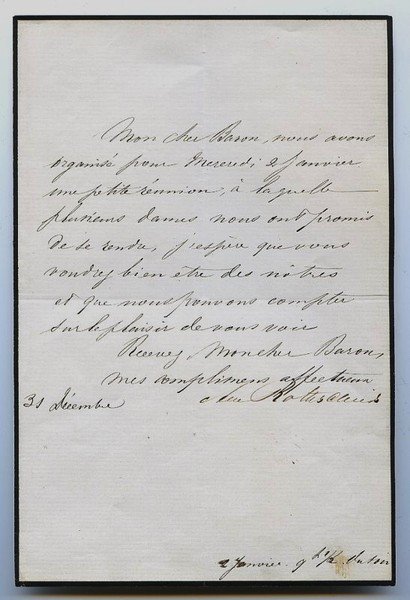 Mon cher Baron, nous avons
organisé pour Mercredi 2 Janvier
une petite réunion, à laquelle
plusieurs dames nous ont promis
de se rendre, j'espère que vous
voudrez bien etre des nôtres
et que nous pouvons compter
sur le plaisir de vous voir
Recevez, Mon cher Baron,
mes complimens affectueux
Rothschild
31 Décembre
2 Janvier 9 h 1/2 du soir